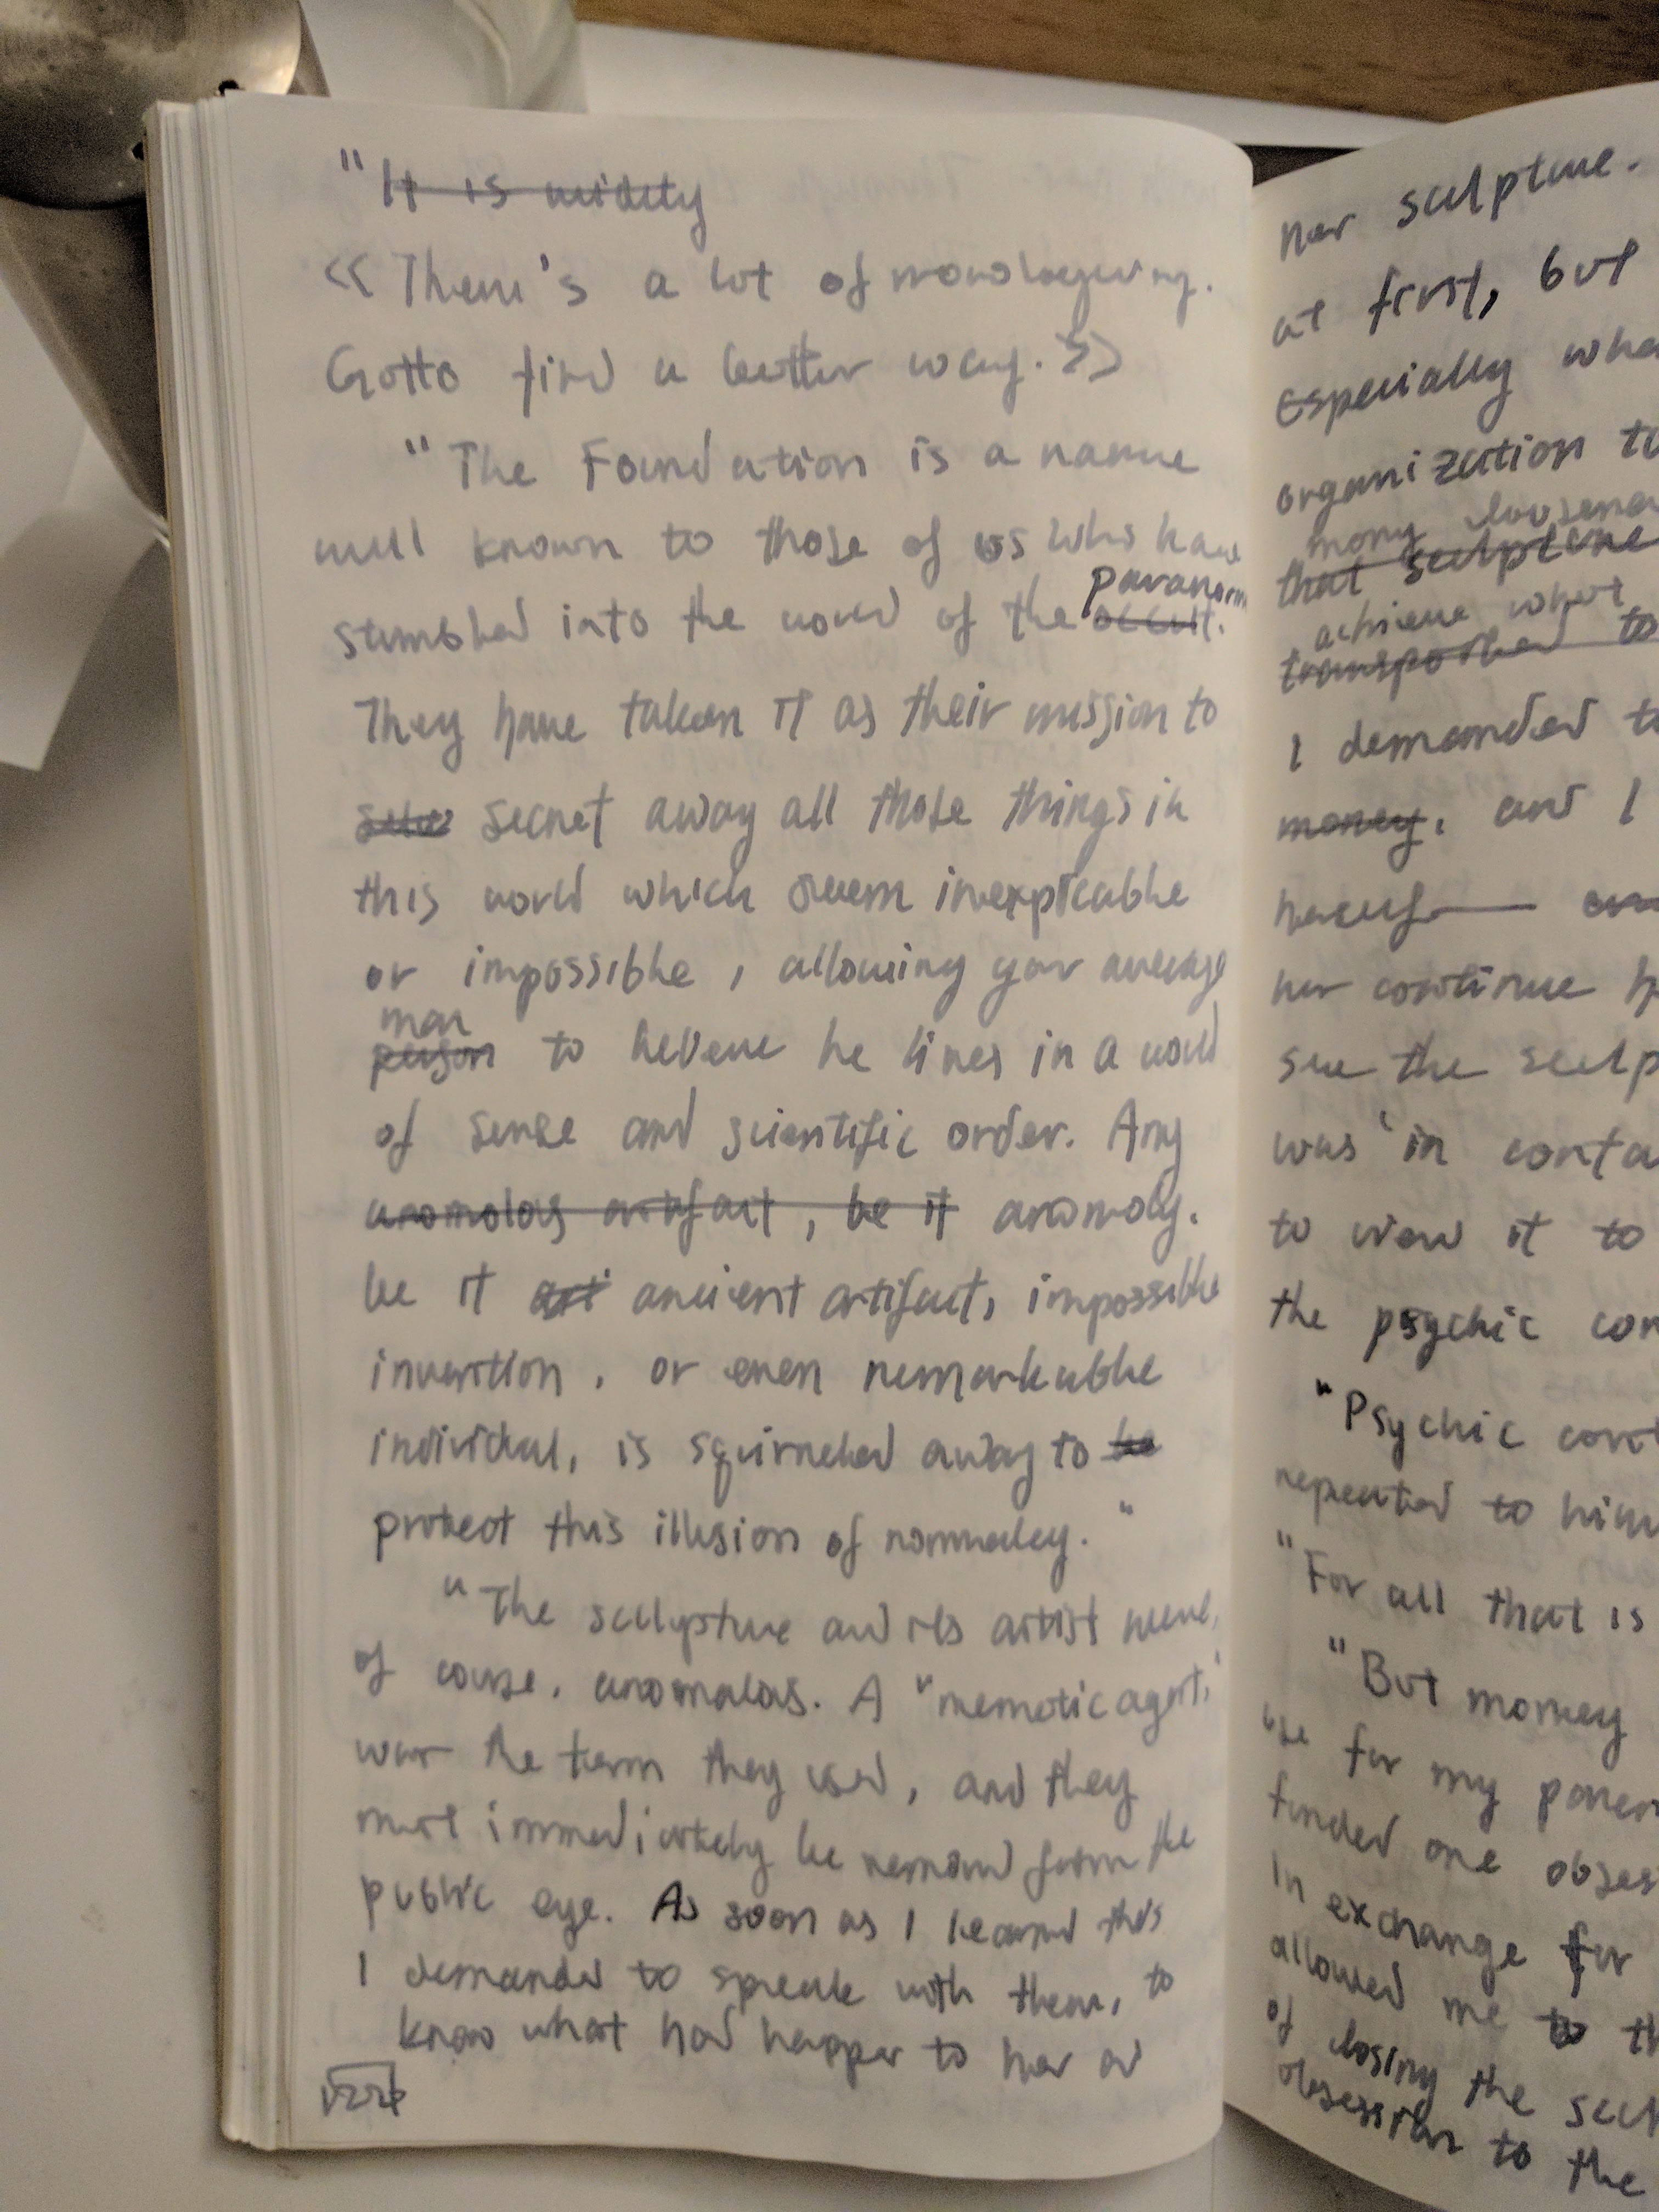 "It is widely
<< There's a lot of monologuing.
Gotto find a better way. >>
"The Foundation is a name
well known to those of us who have
paranorm
stumbled into the world of the occult.
They have taken it as their mission to
secret away all those things in
this world which seem inexplicable
or impossible, allowing your average
man
person to believe he lives in a world
of sense and scientific order. Any
anomolous artifact, be it anomoly.
be it art ancient artifact, impossible
invention, or even remarkable
individual, is squirreled away to be
protect this illusion of normalcy."
"The sculpture and its artist were,
of course, anomalous. A "memetic agent,"
was the term they used, and they
must immediately be removed from the
public eye. As soon as I learned this
I demanded to speak with them, to
know what had happen to her or
her sculpture.
at first, but
especially wha
organization to
many
that sculpture
achieve what
transported to
I demanded to
money, and I
herself—
her continue h
see the sculp
was in conta
to view it to
the psychic con
"Psychic cont
repeated to him
"For all that is
"But money
use for my
funded one obses
in exchange for
allowed me to th
of losing the scul
obsession to the